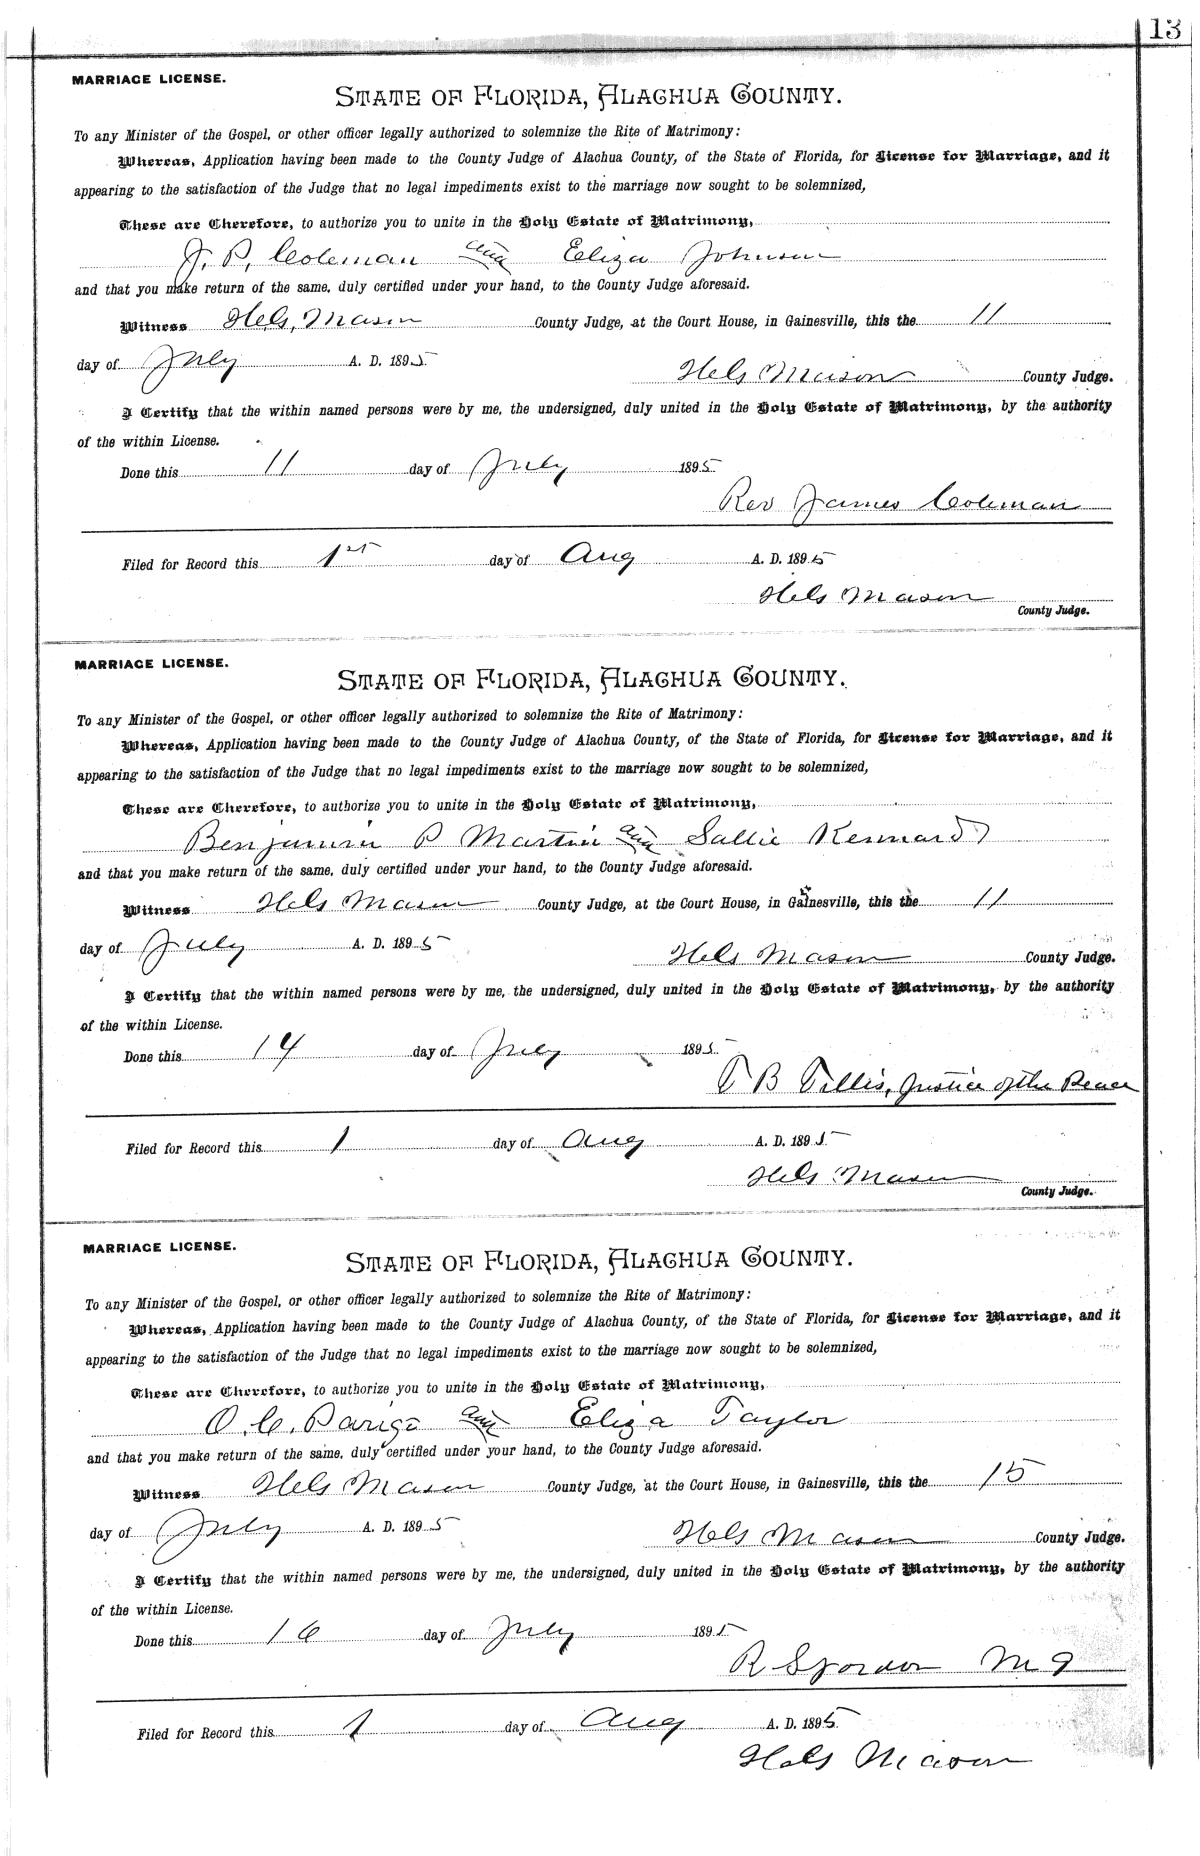 13
MARRIAGE LICENSE.
STATE OF FLORIDA, ALACHUA COUNTY.
To any Minister of the Gospel, or other officer legally authorized to solemnize the Rite of Matrimony:
Whereas, Application having been made to the County Judge of Alachua County, of the State of Florida, for License for Marriage, and it
appearing to the satisfaction of the Judge that no legal impediments exist to the marriage now sought to be solemnized,
These are Therefore, to authorize you to unite in the Holy Estate of Matrimony,
J. P. Coleman and Eliza Johnson
and that you make return of the same, duly certified under your hand, to the County Judge aforesaid.
Witness Mason County Judge, at the Court House, in Gainesville, this the 11
day of July A. D. 1895 Mason County Judge.
I Certify that the within named persons were by me, the undersigned, duly united in the Holy Estate of Matrimony, by the authority
of the within License.
Done this 11 day of July 1895
Rev James Coleman
Filed for Record this 1st day of Aug A. D. 1895
Mason
County Judge.
MARRIAGE LICENSE.
STATE OF FLORIDA, ALACHUA COUNTY.
To any Minister of the Gospel, or other officer legally authorized to solemnize the Rite of Matrimony:
Whereas, Application having been made to the County Judge of Alachua County, of the State of Florida, for License for Marriage, and it
appearing to the satisfaction of the Judge that no legal impediments exist to the marriage now sought to be solemnized,
These are Therefore, to authorize you to unite in the Holy Estate of Matrimony,
Benjamin P Martin and Sallie Kennard
and that you make return of the same, duly certified under your hand, to the County Judge aforesaid.
Witness Mason County Judge, at the Court House, in Gainesville, this the 11
day of July A. D. 1895 Mason County Judge.
I Certify that the within named persons were by me, the undersigned, duly united in the Holy Estate of Matrimony, by the authority
of the within License.
Done this 14 day of July 1895
T B Tillis, Justice of the Peace
Filed for Record this 1 day of Aug A. D. 1895
Mason
County Judge.
MARRIAGE LICENSE.
STATE OF FLORIDA, ALACHUA COUNTY.
To any Minister of the Gospel, or other officer legally authorized to solemnize the Rite of Matrimony:
Whereas, Application having been made to the County Judge of Alachua County, of the State of Florida, for License for Marriage, and it
appearing to the satisfaction of the Judge that no legal impediments exist to the marriage now sought to be solemnized,
These are Therefore, to authorize you to unite in the Holy Estate of Matrimony,
O. C. and Eliza Taylor
and that you make return of the same, duly certified under your hand, to the County Judge aforesaid.
Witness Mason County Judge, at the Court House, in Gainesville, this the 15
day of July A. D. 1895 Mason County Judge.
I Certify that the within named persons were by me, the undersigned, duly united in the Holy Estate of Matrimony, by the authority
of the within License.
Done this 16 day of July 1895
R
Filed for Record this 1 day of Aug A. D. 1895
Mason